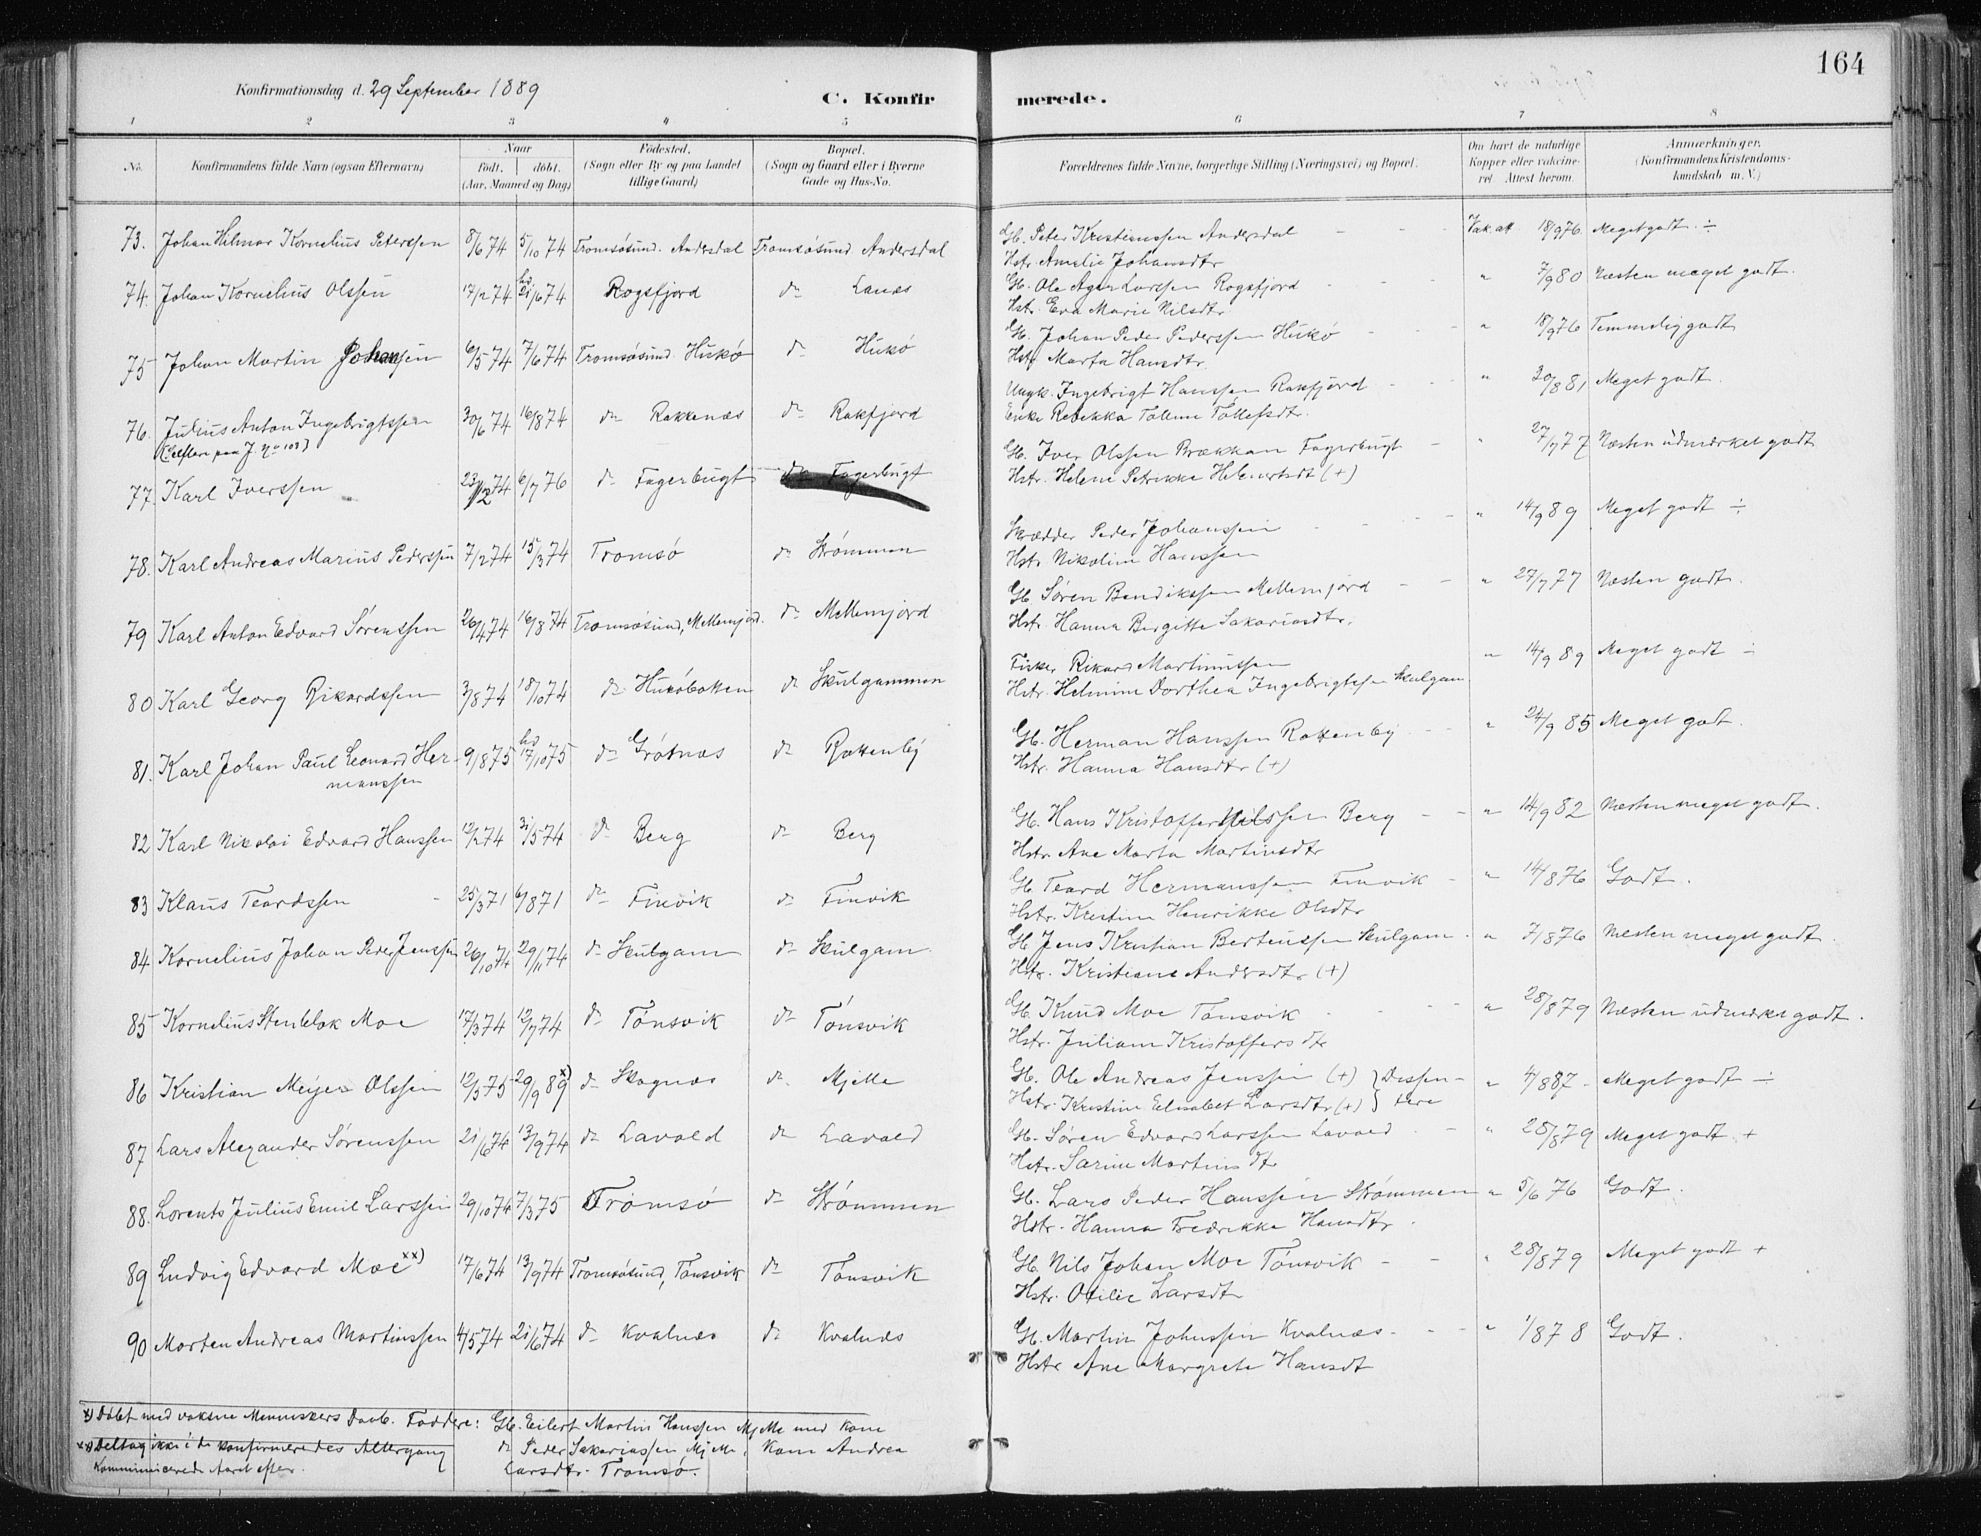 164
Konfirmationsdag d. 29 September 1889
C. Konfirmerede.
1 2 3 4 5 6 7 8
No. Konfirmandens fulde Navn (ogsaa Efternavn) Naar født. døbt. (Aar, Maaned og Dag) Fødested. (Sogn eller By og paa Landet tillige Gaard) Bopæl. (Sogn og Gaard eller i Byerne Gade og Hus-No. Forældrenes fulde Navne, borgerlige Stilling (Næringsvei) og Bopæl. Om havt de naturlige Kopper eller vakcineret. Attest herom. Anmærkninger. (Konfirmandens Kristendomskundskab m. V.)
73. Johan Hilmar Kornelius Peterssen 8/6 74 5/10 74 Tromsøsund. Andersdal Tromsøsund Andersdal Gb. Peter Kristianssen Andersdal Vak. att 18/9 76 Meget godt ÷
Hstr. Amalie Johansdtr
74. Johan Kornelius Olssen 17/2 74 hd 21/6 74 Rogsfjord do Lanæs Gb. Ole Ager Larssen Rogsfjord " 7/9 80 Næsten meget godt.
Hstr. Eva Marie Nilsdtr
75 Johan Martin Johanssen 6/5 74 7/6 74 Tromsøsund Hukø do Hukø Gb. Johan Peder Pederssen Hukø " 18/9 76 Temmelig godt
Hstr Marta Hansdtr.
76. Julius Anton Ingebrigtssen 30/6 74 16/8 74 do Rakkenæs do Rakfjord Ungk. Ingebrigt Hanssen Rakfjord " 30/8 81 Meget godt.
Enke Rebekka Tolline Tollefsdtr.
77. Karl Iverssen 23/12 74 6/7 76 do Fagerbugt do Fagerbugt Gb. Iver Olssen Brækkan Fagerbugt " 27/7 77 Næsten udmærket godt
Hstr. Helene Petrikke (+)
78. Karl Andreas Marius Pederssen 7/2 74 15/3 74 Tromsø do Strømmen Skrædder Peder Johanssen " 14/9 89 Meget godt ÷
Hstr Nikoline Hanssen
79 Karl Anton Edvard Sørenssen 26/4 74 16/8 74 Tromsøsund, Mellemjord. do Mellemjord Gb Søren Bendikssen Mellemjord " 27/7 77 Næsten godt.
Hstr. Hanna Birgitte Sakariasdtr.
80 Karl Georg Rikardssen 3/8 74 18/10 74 do Hukøbotten do Skulgammen Fisker Rikard Martinussen " 14/9 89 Meget godt ÷
Hstr. Helmine Dorthea Ingebrigtssen Skulgam
81. Karl Johan Paul Leonard Her- 9/8 75 hd 17/10 75 do Grøtnæs do Rottenby Gb. Herman Hanssen Rottenby " 24/9 85 Meget godt.
manssen Hstr. Hanna Hansdtr (+)
82 Karl Nikolai Edvard Hanssen 12/2 74 31/5 74 do Berg do Berg Gb. Hans Kristoffer Nilssen Berg " 14/9 82 Næsten meget godt.
Hstr Ane Marta Martinsdtr
83 Klaus Teardssen 25/3 71 6/8 71 do Finvik do Finvik Gb Teard Hermanssen Finvik " 14/8 76 Godt.
Hstr. Kristine Henrikke Olsdtr
84 Kornelius Johan Peder Jenssen 26/10 74 29/11 74 do Skulgam do Skulgam Gb Jens Kristian Berteussen Skulgam. " 7/8 76 Næsten meget godt.
Hstr. Kristiane Andersdtr (+)
85 Kornelius Stenblok Moe 17/3 74 12/7 74 do Tønsvik do Tønsvik Gb Knud Moe Tønsvik " 28/8 79 Næsten udmærket godt.
Hstr. Juliane Kristoffersdtr
86 Kristian Meyer Olssen 12/5 75 29/9 89 x) do Skognæs do Mjelle Gb. Ole Andreas Jenssen (+) } Dissen- " 4/8 87 Meget godt ÷
Hstr. Kristine Elisabet Larsdtr (+) } tere
87 Lars Alexander Sørenssen 21/6 74 13/9 74 do Lavold do Lavold Gb. Søren Edvard Larssen Lavold " 28/8 79 Meget godt +
Hstr. Sarine Martinsdtr
88. Lorents Julius Emil Larssen 29/10 74 7/3 75 Tromsø do Strømmen Gb. Lars Peder Hanssen Strømmen " 5/6 76 Godt.
Hstr. Hanna Fredrikke Hansdtr.
89 Ludvig Edvard Moe xx) 17/6 74 13/9 74 Tromsøsund, Tønsvik do Tønsvik Gb. Nils Johan Moe Tønsvik " 28/8 79 Meget godt +
Hstr. Otilie Larsdt
90 Morten Andreas Martinssen 4/5 74 21/6 74 do Kvalnæs do Kvalnæs Gb. Martin Johnssen Kvalnæs " 1/8 78 Godt.
Hstr Ane Margrete Hansdt
x) Døbt med voksne Menneskers Daab. Faddere: Gb. Eilert Martin Hanssen Mjelle med Kone
do Peder Sakariassen Mjelle, Kone Andrea
Larsdtr. Tromsø.
xx) Deltog ikke i de konfirmeredes Altergang
Kommunicerede Aaret efter.